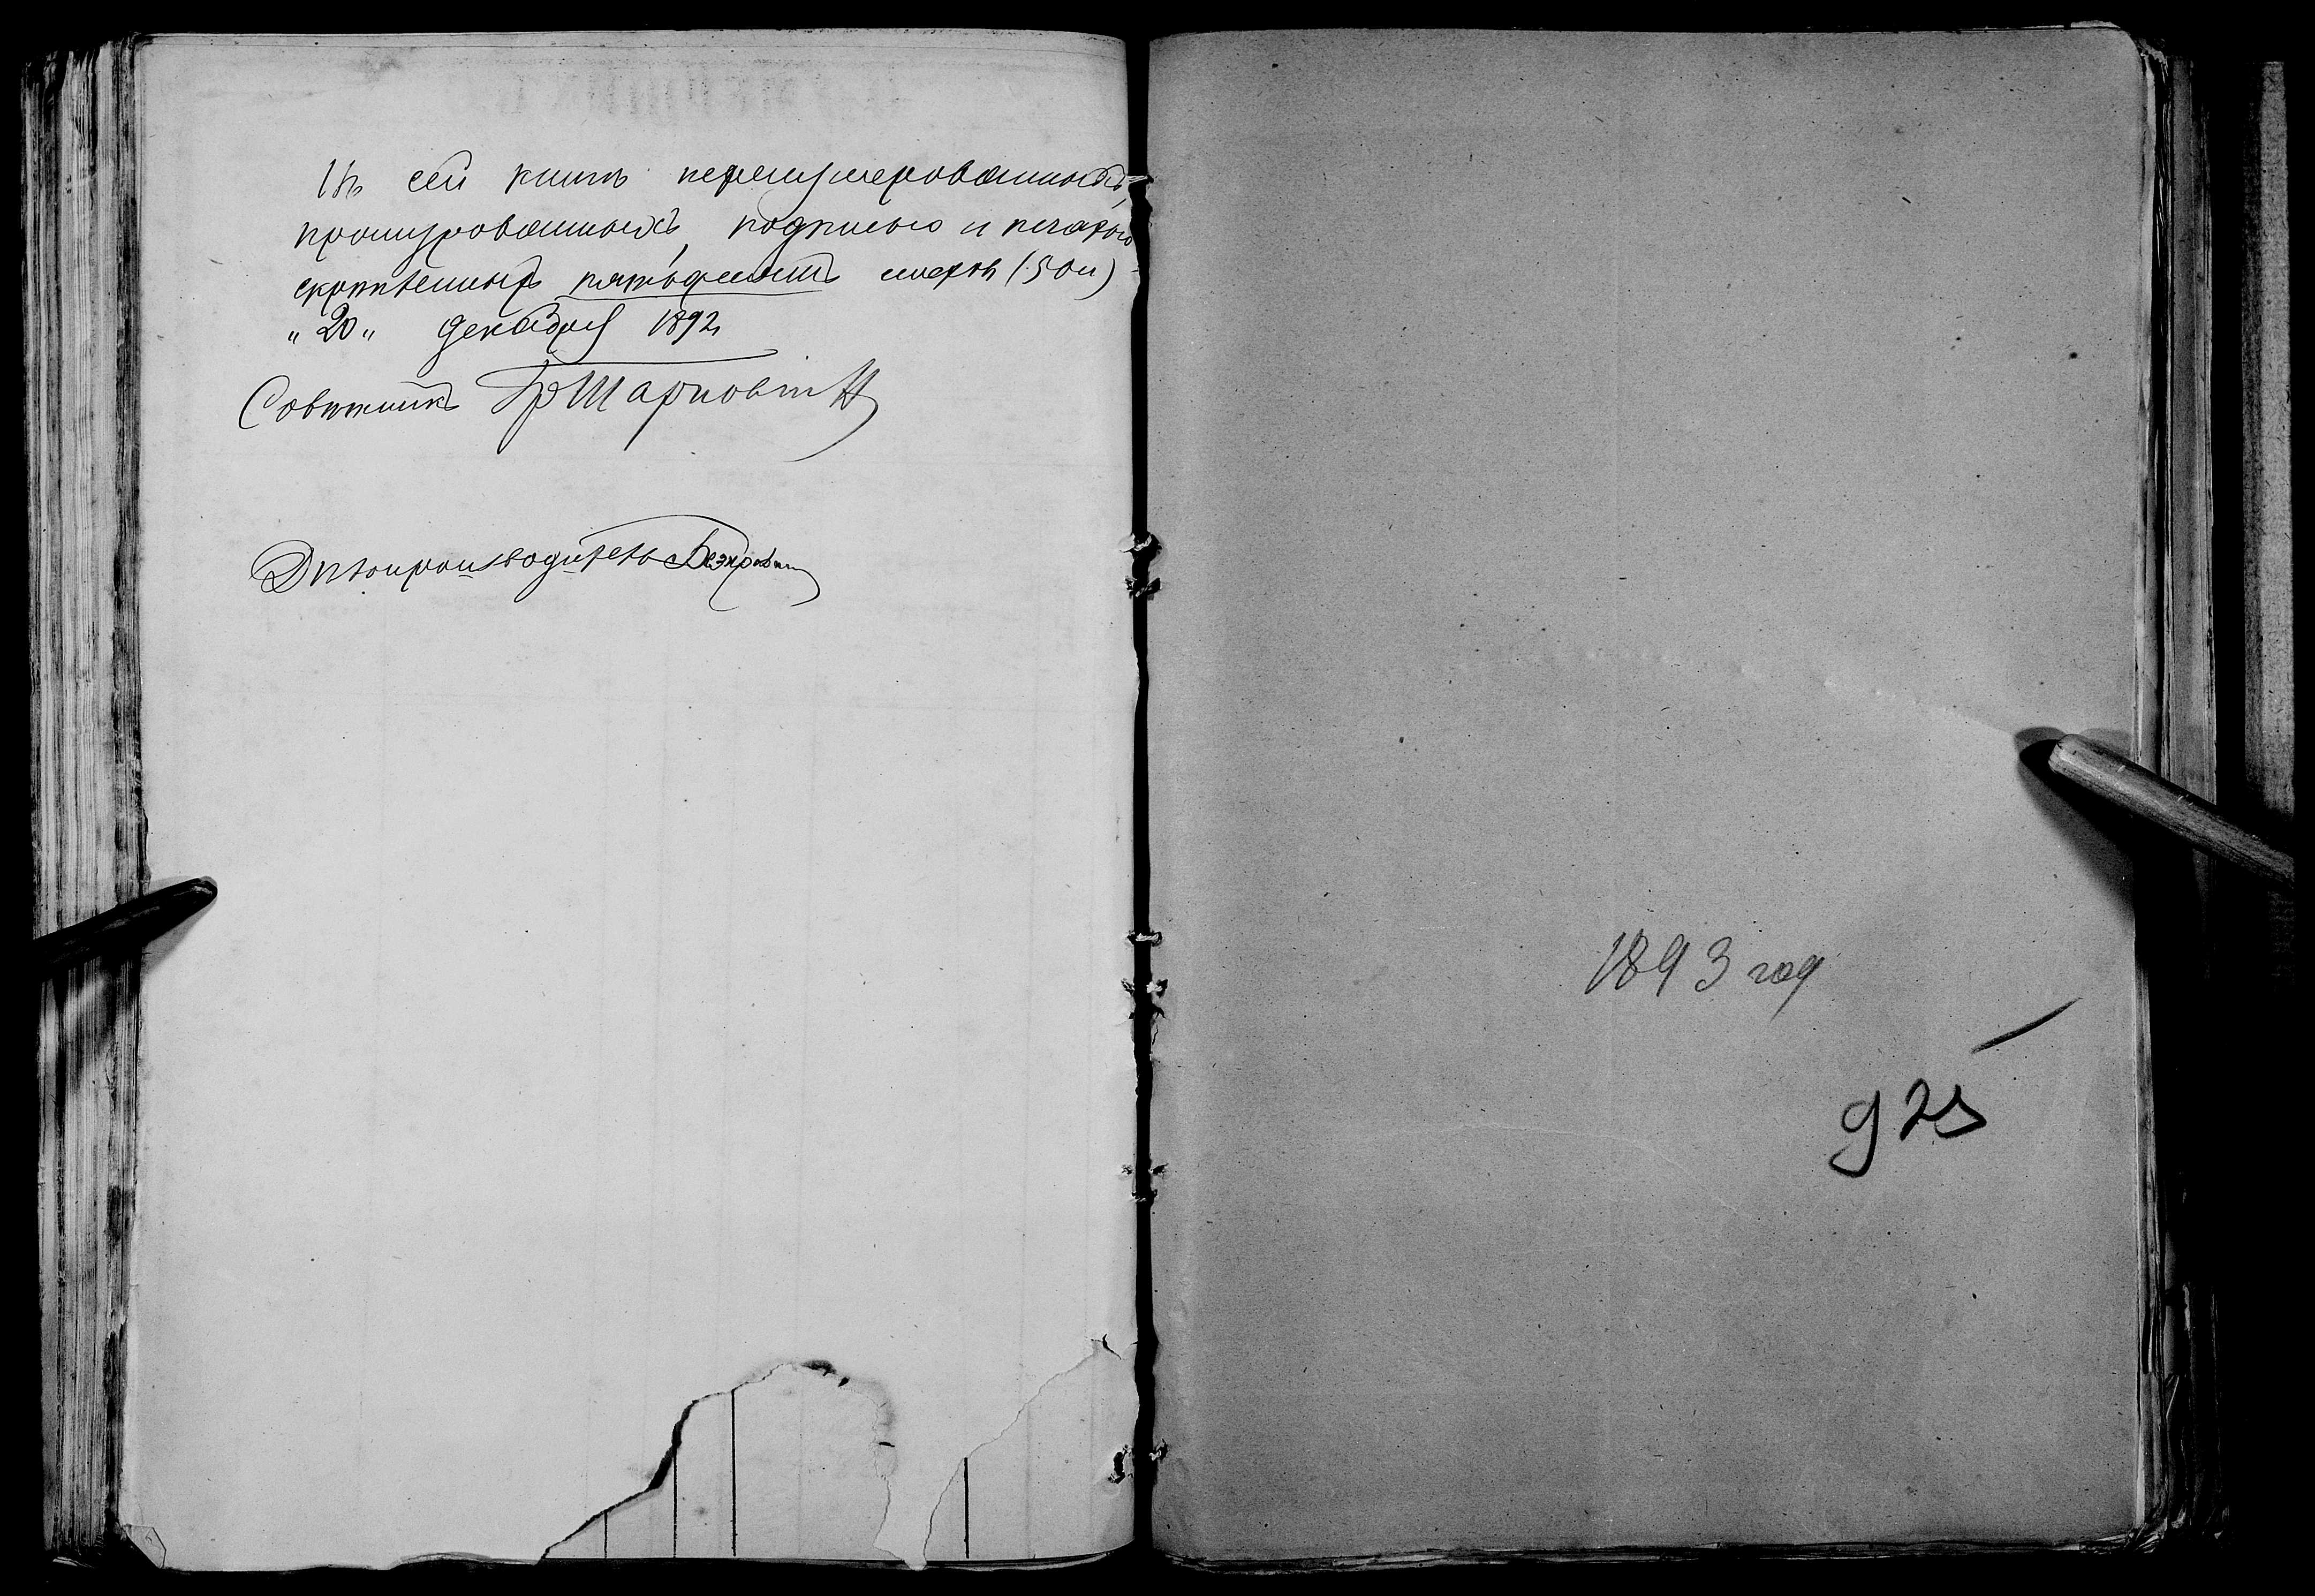 Въ сей книгѣ перенумерованныхъ,
прошнурованныхъ, подписью и печатью
скрѣпленныхъ пятьдесятъ листовъ (50 л)
„20„ декабря 1892
Совѣтникъ
Дѣлопроизводитель
1893 год
925